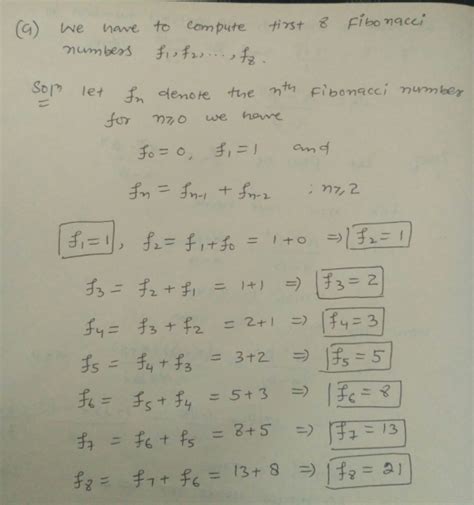 (a) We have to compute first 8 Fibonacci
numbers f₁, f₂, ..., f₈.
Solⁿ let fₙ denote the nᵗʰ Fibonacci number
for n≥0 we have
f₀ = 0, f₁ = 1 and
fₙ = fₙ₋₁ + fₙ₋₂ ; n≥2
f₁ = 1, f₂ = f₁ + f₀ = 1 + 0 ⇒ f₂ = 1
f₃ = f₂ + f₁ = 1+1 ⇒ f₃ = 2
f₄ = f₃ + f₂ = 2+1 ⇒ f₄ = 3
f₅ = f₄ + f₃ = 3+2 ⇒ f₅ = 5
f₆ = f₅ + f₄ = 5+3 ⇒ f₆ = 8
f₇ = f₆ + f₅ = 8+5 ⇒ f₇ = 13
f₈ = f₇ + f₆ = 13+8 ⇒ f₈ = 21